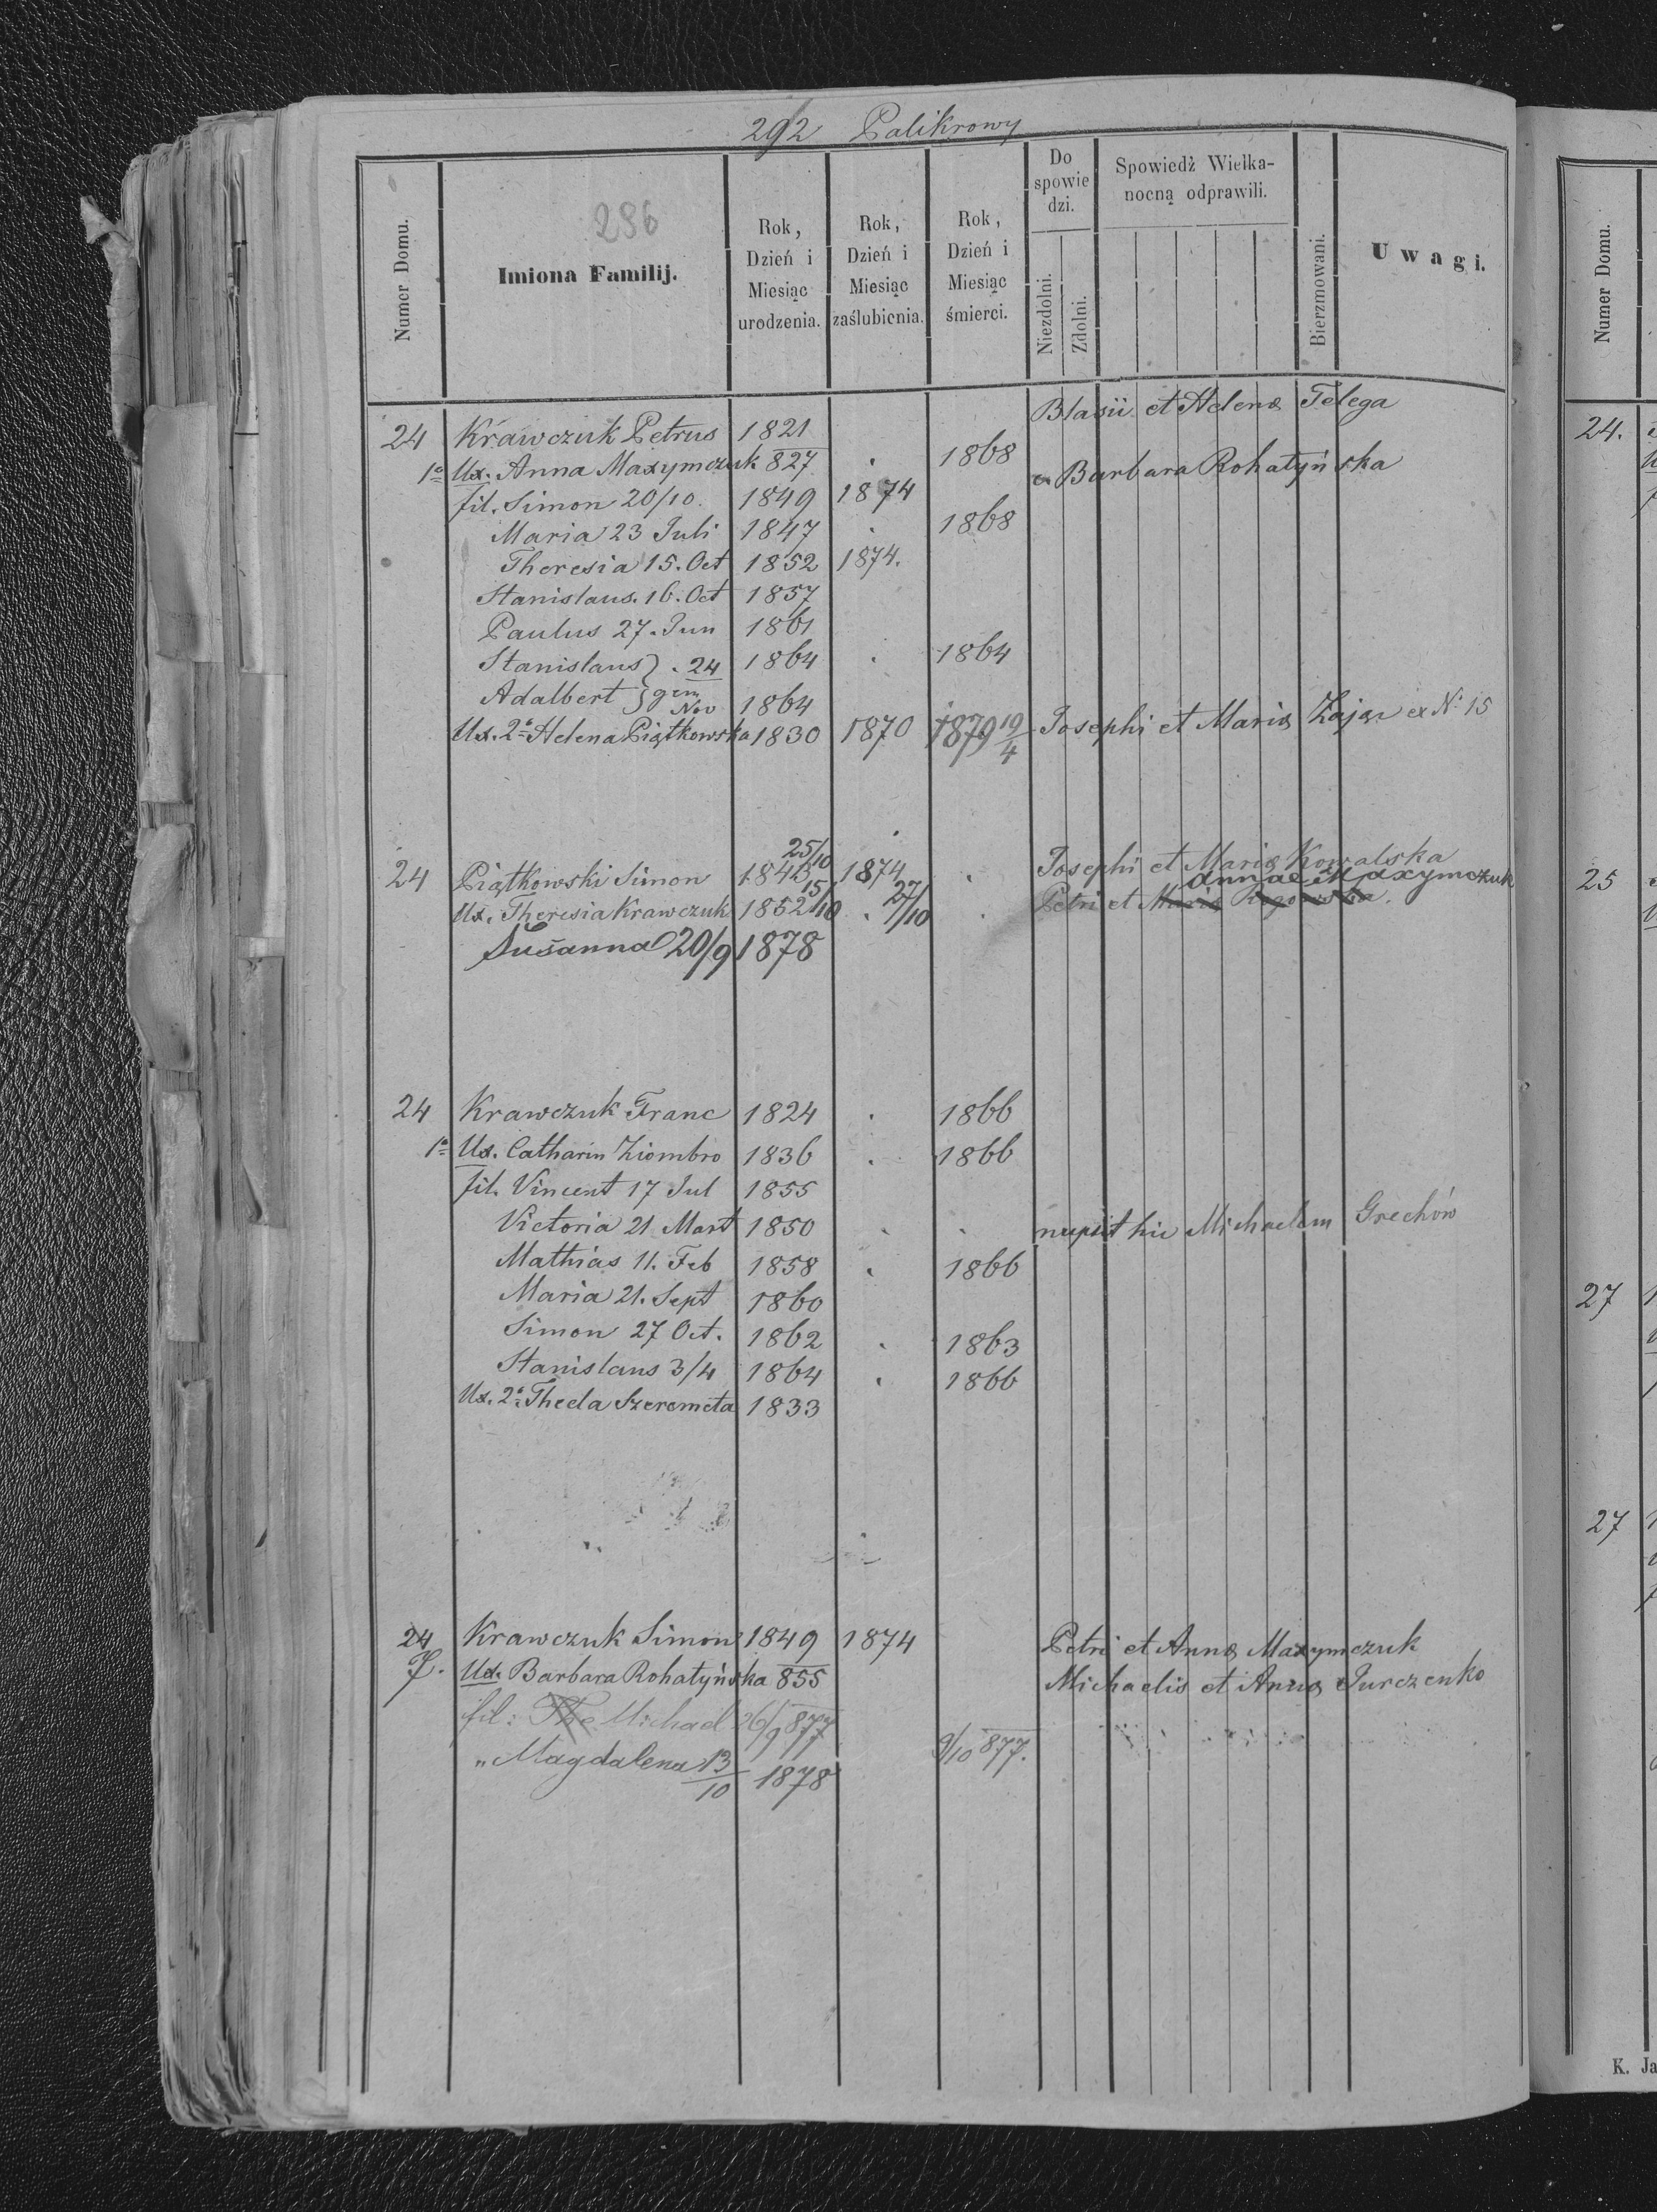 292 Palikrowy
296
Numer Domu.
Imiona Familij.
Rok, Dzień i Miesiąc urodzenia.
Rok, Dzień i Miesiąc zaślubienia.
Rok, Dzień i Miesiąc śmierci.
Do spowiedzi.
Niezdolni.
Zdolni.
Spowiedź Wielkanocną odprawili.
Bierzmowani.
Uwagi.
24 Krawczuk Petrus 1821 Blasii et Helenæ Telega
1º Ux. Anna Maxymczuk 827 . 1868
fil. Simon 20/10. 1849 1874 Barbara Rohatyńska
Maria 23 Juli 1847 . 1868
Theresia 15. Oct 1852 1874.
Stanislaus. 16. Oct 1857
Paulus 27. Jun 1861
Stanislaus } . 24 1864 . 1864
Adalbert } gem Nov 1864
Ux. 2º Helena Piątkowska 1830 1870 1879 19/4 Josephi et Mariæ Zając ex Nº 15
24 Piątkowski Simon 25/10 1843 1874 . Josephi et Mariæ Kowalska
Ux. Theresia Krawczuk 1852 15/10 . 27/10 . Petri et Mariæ Rogowska. Annae Maxymczuk
Susanna 20/9 1878
24 Krawczuk Franc 1824 . 1866
1º Ux. Catharin Ziombro 1836 . 1866
fil. Vincent 17 Jul 1855
Victoria 21. Mart 1850 . . nupsit hic Michaelem Grechów
Mathias 11. Feb 1858 . 1866
Maria 21. Sept 1860
Simon 27 Oct. 1862 . 1863
Stanislaus 3/4 1864 . 1866
Ux. 2º Thecla Szeremeta 1833
24 Krawczuk Simon 1849 1874 Petri et Annæ Maxymczuk
7. Ux. Barbara Rohatyńska 855 Michaelis et Annæ Jurczenko
fil: The Michael 26/9 877 9/10 877.
" Magdalena 13/10 1878
Numer Domu.
24.
25
27
27
K. Ja